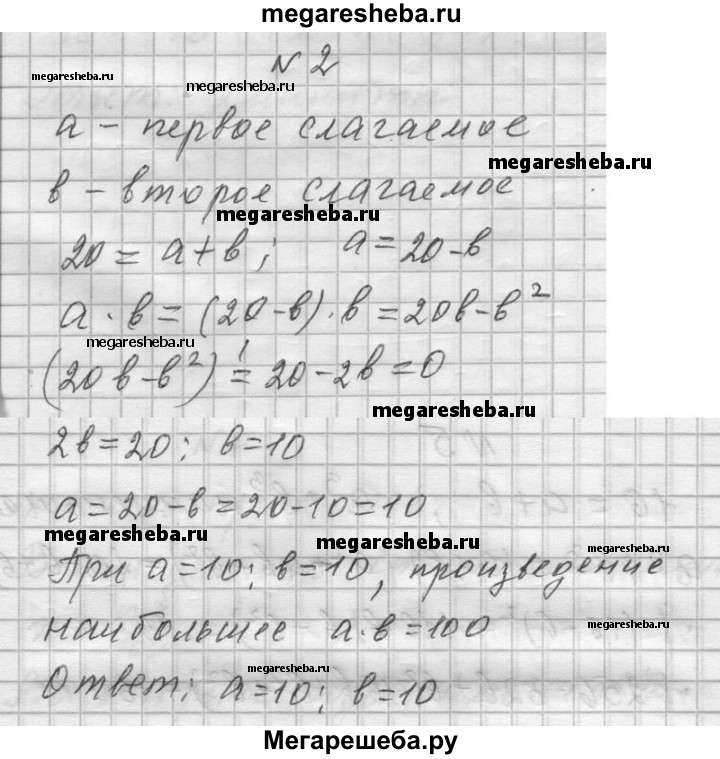 megaresheba.ru
N 2
megaresheba.ru
megaresheba.ru
а - первое слагаемое
megaresheba.ru
в - второе слагаемое
megaresheba.ru
20 = а+в; а=20-в
а · в = (20-в)·в = 20в-в²
megaresheba.ru
(20в-в²)' = 20-2в=0
megaresheba.ru
2в=20; в=10
а=20-в=20-10=10
megaresheba.ru
megaresheba.ru
megaresheba.ru
При а=10; в=10, произведение
наибольшее а·в=100
megaresheba.ru
megaresheba.ru
Ответ: а=10; в=10
Мегарешеба.ру